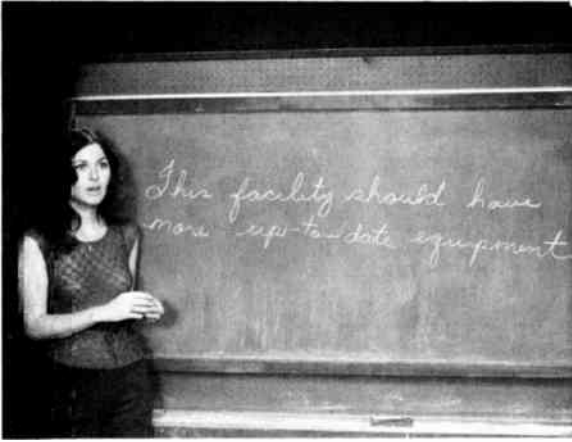 This facility should have
more up-to-date equipment